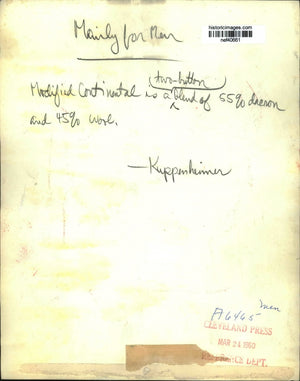 historicimages.com
nef40661
Mainly for Men
(two-button)
Modified Continental is a blend of 55% dacron
and 45% wool.
—Kuppenheimer
men
A6465
CLEVELAND PRESS
MAR 24 1960
REFERENCE DEPT.